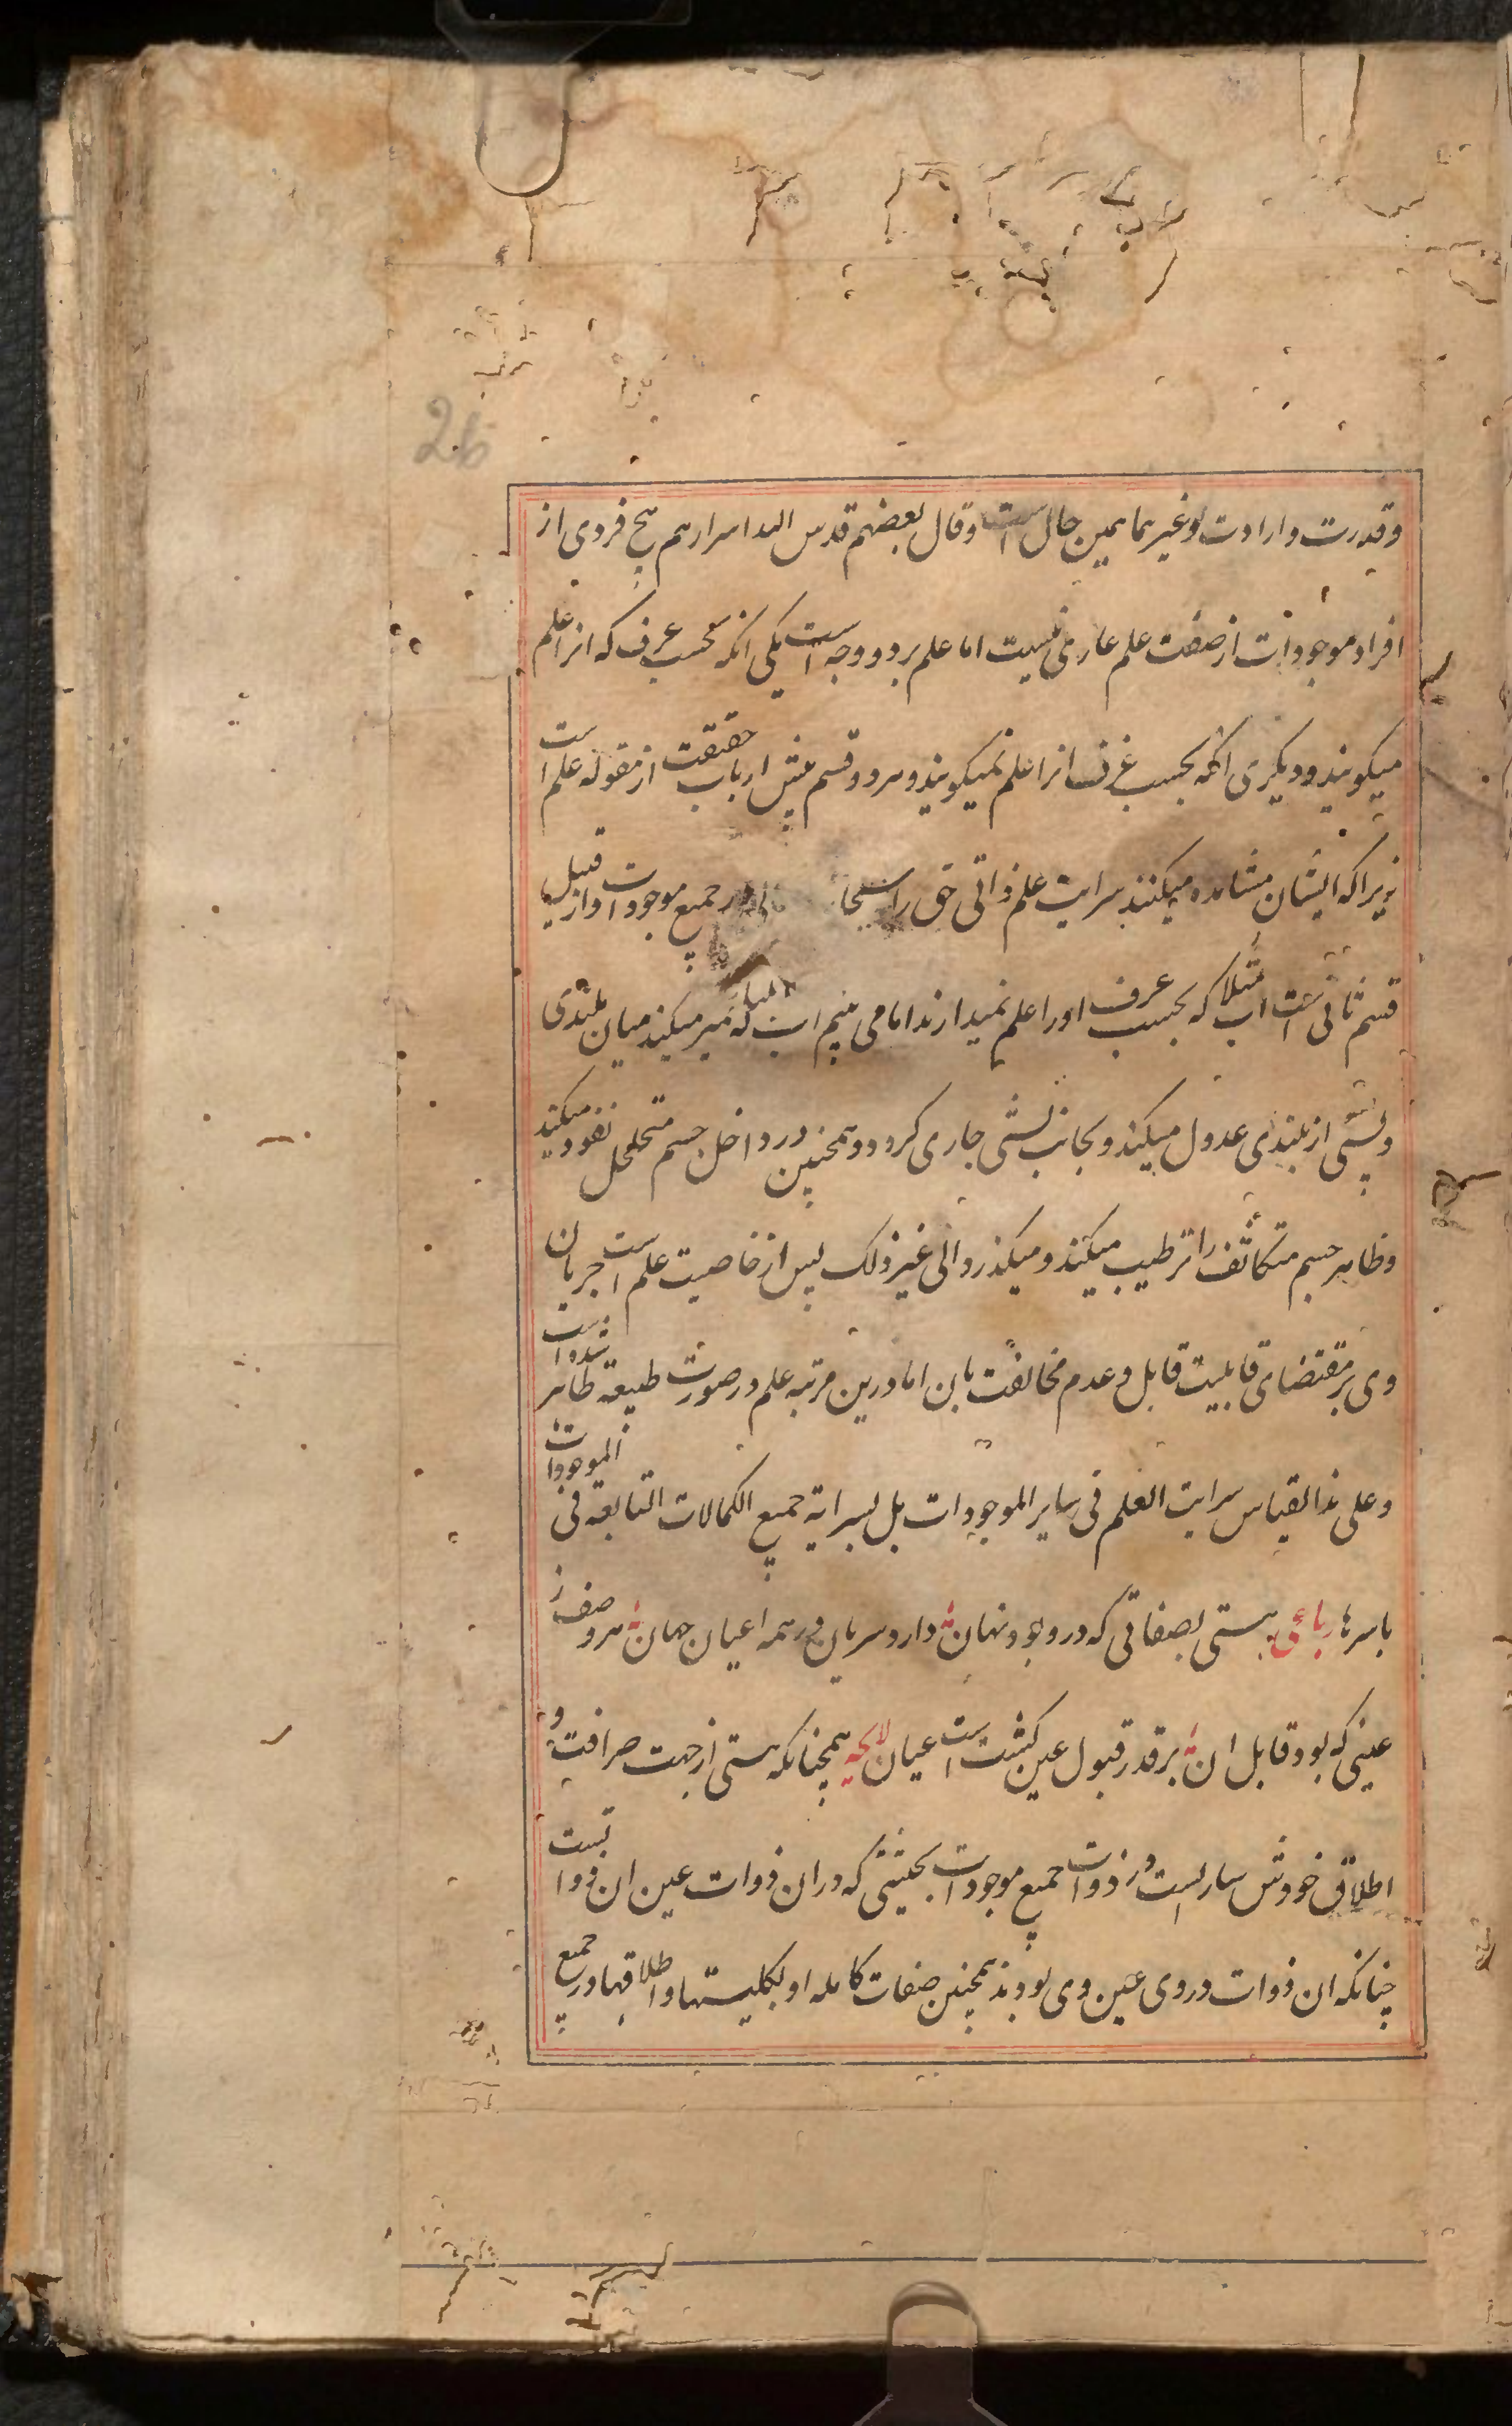 26
وقدرت وارادت وغیرهما همین حال است وقال بعضهم قدس الله اسرارهم هیچ فردی از
افراد موجودات از صفت علم عاری نیست اما علم بر دو وجه است یکی انکه بحسب عرف که انرا علم
میکویند ودیکری انکه بحسب عرف انرا علم نمیکویند وهر دو قسم پیش ارباب حقیقت از مقوله علم است
زیرا که ایشان مشاهده میکنند سرایت علم ذاتی حق را سبحا لی در جمیع موجودات واز قبیل
قسم ثانی است اب مثلا که بحسب عرف اورا علم نمیدارند اما می بینیم اب که تمیز میکند میان بلندی
وپستی از بلندی عدول میکند وبجانب پستی جاری کردد وهمچنین در داخل جسم متخلخل نفوذ میکند
وظاهر جسم متکاثف را ترطیب میکند ومیکذرد الی غیر ذلک پس از خاصیت علم است جریان
وی بر مقتضای قابلیت قابل وعدم مخالفت بان اما درین مرتبه علم در صورت طبیعة ظاهر شده است
وعلی هذا القیاس سرایت العلم فی سایر الموجودات بل سرایة جمیع الکمالات التابعة فی الموجودات
باسرها رباعی هستی بصفاتی که درو بود نهان دارد سریان در همه اعیان جهان هر وصف ز
عینی که بود قابل ان بر قدر قبول عین کشتست عیان لایحه همچنانکه هستی از جهت صرافت و
اطلاق خودش ساریست در ذوات جمیع موجودات بحیثیتی که در ان ذوات عین ان ذواتست
چنانکه ان ذوات در وی عین وی بودند همچنین صفات کامله او بکلیتها واطلاقها در جمیع